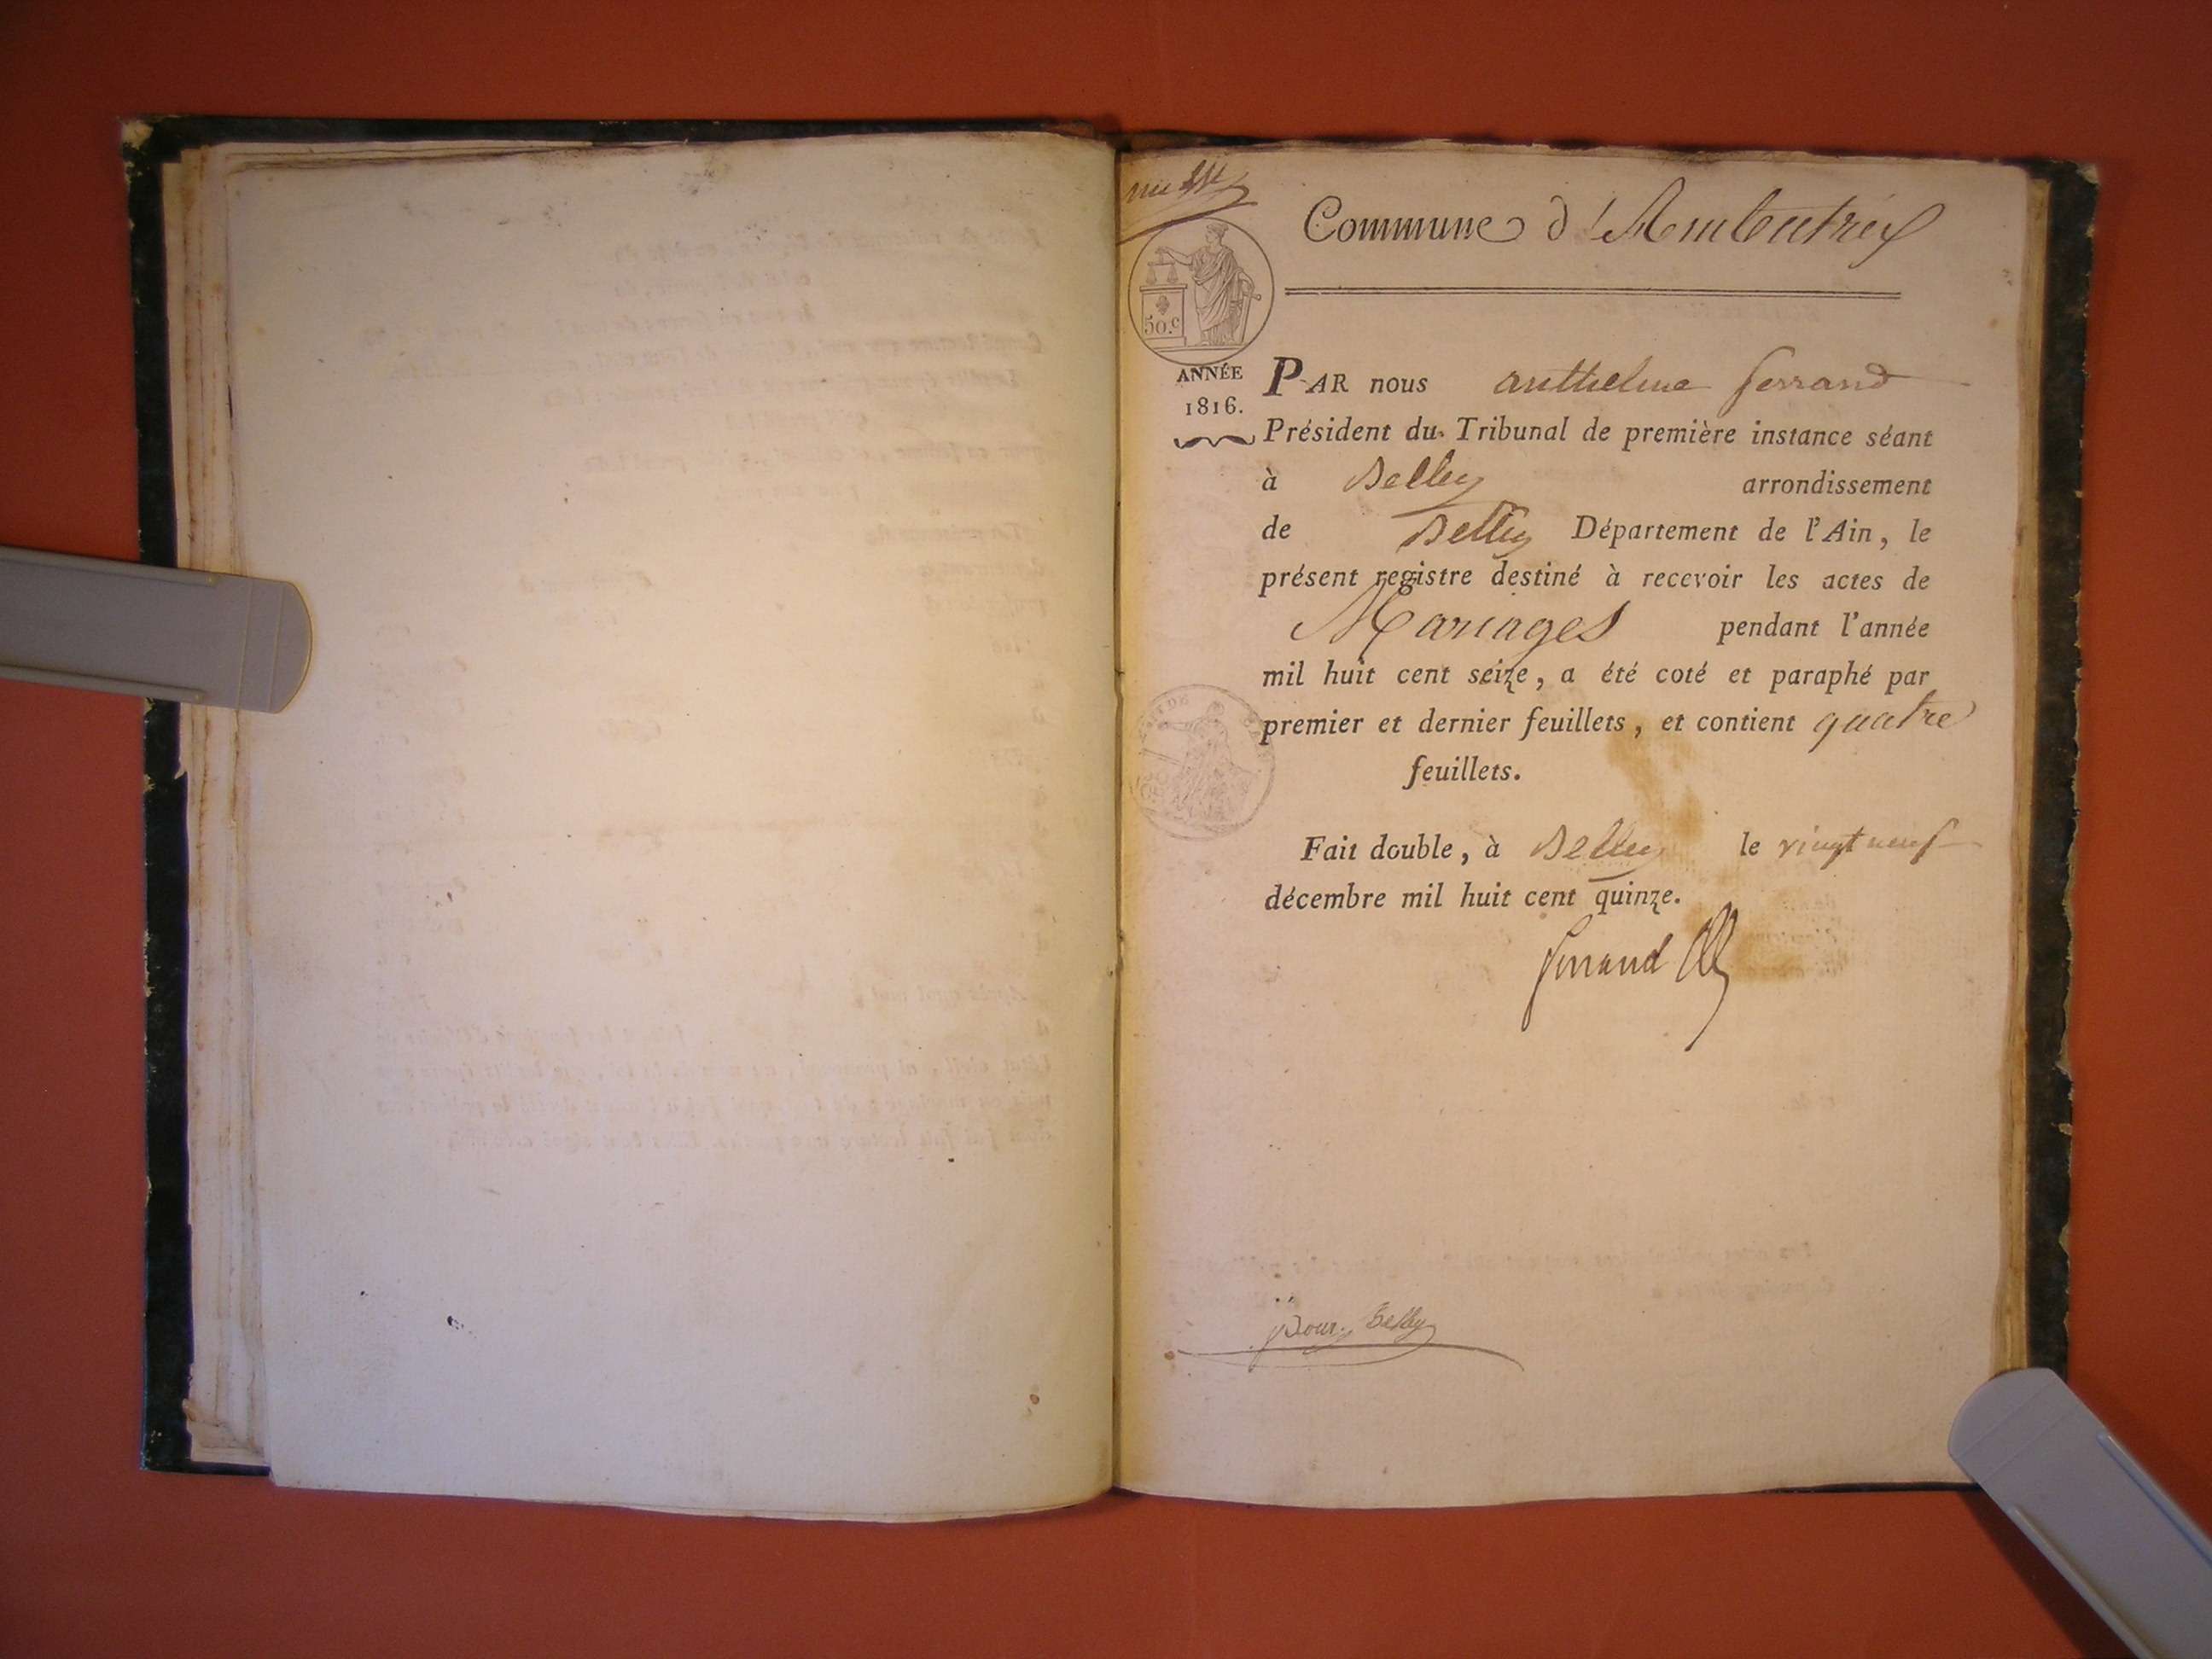 Commune d'Ambutrix
50.c
ANNÉE
1816.
PAR nous anthelme ferrand
Président du Tribunal de première instance séant
à Belley arrondissement
de Belley Département de l'Ain, le
présent registre destiné à recevoir les actes de
Mariages pendant l'année
mil huit cent seize, a été coté et paraphé par
premier et dernier feuillets, et contient quatre
feuillets.
Fait double, à Belley le vingt neuf
décembre mil huit cent quinze.
ferrand
pour Belley